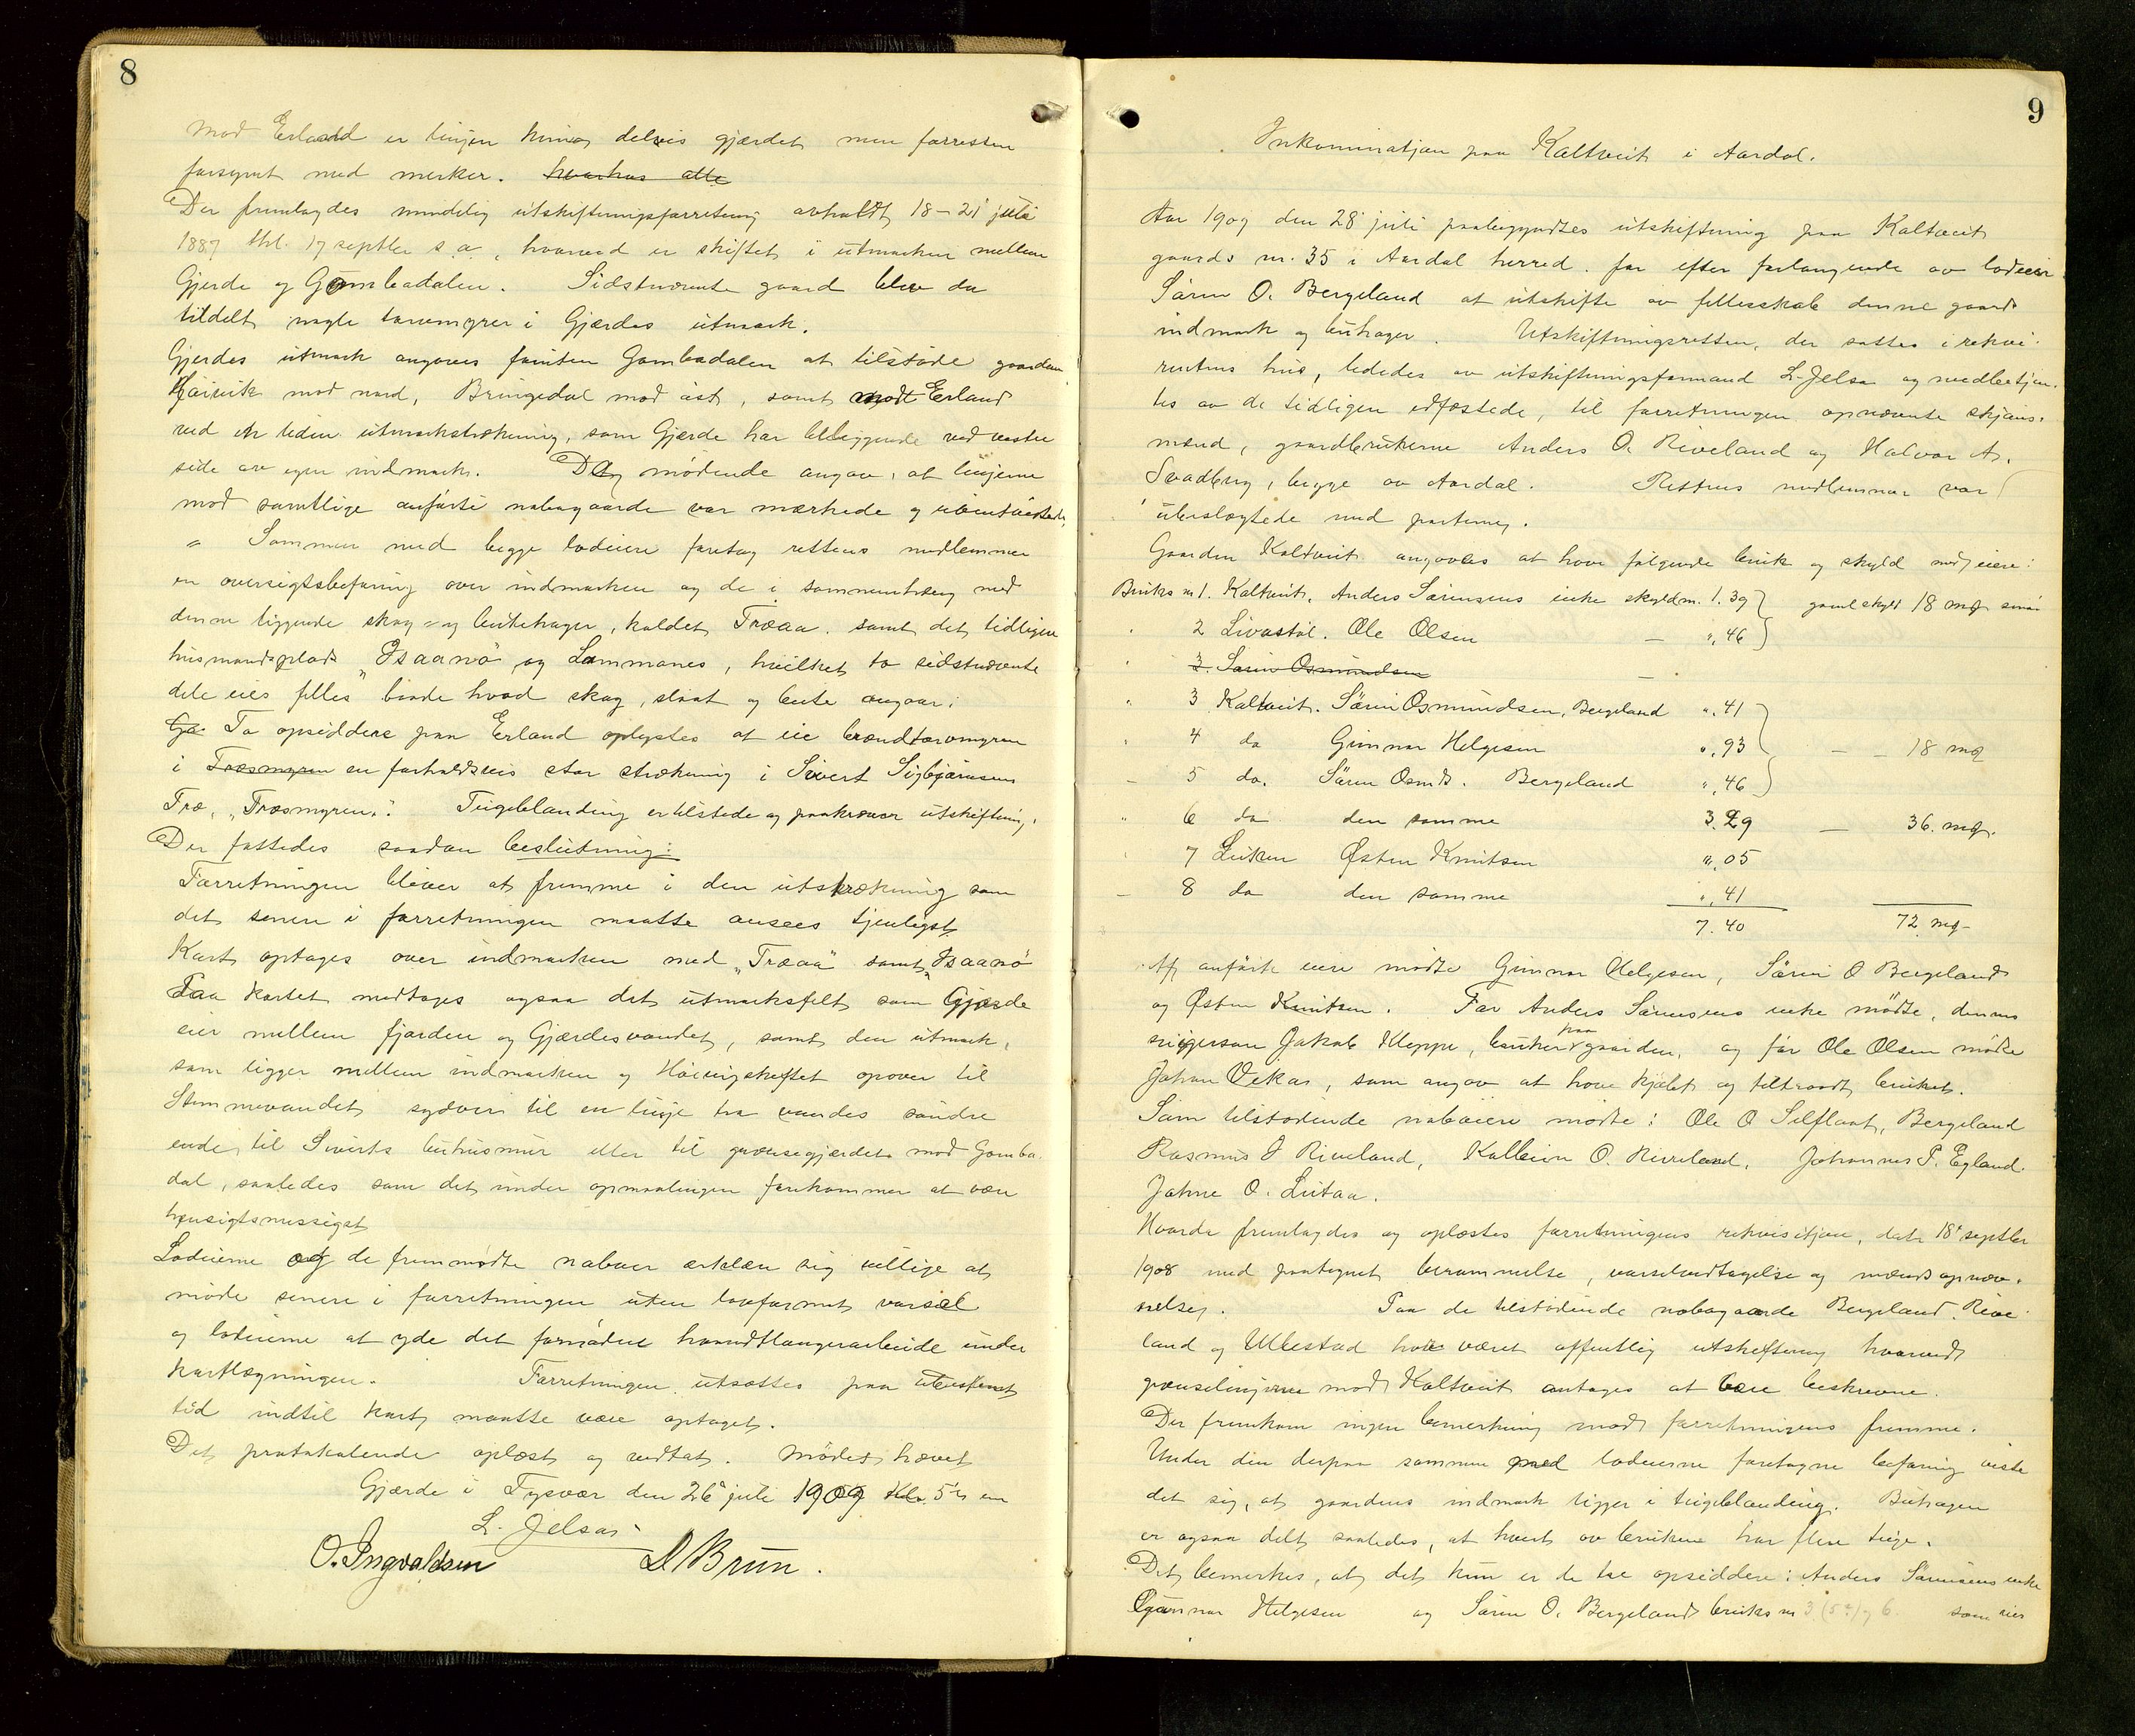 8
mod Erland er linjen kun delvis gjærdet men forresten
forsynt med merker. hvorhos alle
Der fremlagdes mindelig utskiftningsforretning avholdt 18-21 juli
1887 thl. 17 septbr s.a., hvorved er skiftet i utmarken mellem
Gjerde og Gombadalen. Sidstnævnte gaard blev da
tildelt nogle torvmyrer i Gjærdes utmark.
Gjerdes utmark angaves foruten Gombadalen at tilstøde gaarden
mod nord, Bringedal mod øst, samt modt Erland
ved en liden utmarkstrækning, som Gjærde har beliggende ved vestre
side av egen indmark. De mødende angav, at linjerne
mod samtlige anførte nabogaarde var merkede og uomtvistede
" Sammen med begge lodeiere foretog rettens medlemmer
en oversigtsbefaring over indmarken og de i sammenheng med
denne liggende skog- og beitehager, kaldet Træaa. samt det tidligere
husmandsplads "Isaanø og Lammanes, hvilket to sidstnævnte
dele eies felles baade hvad skog, slaat og beite angaar.
Ga. To opsiddere paa Erland oplystes at eie brændtorvmyren
i Træsmyren en forholdsvis stor strækning i Sivert Sigbjørnsens
Træ, "Træsmyren". Teigeblanding er tilstede og paakræver utskiftning.
Der fattedes saadan beslutning:
Forretningen bliver at fremme i den utstrækning som
det senere i forretningen maatte ansees tjenligst
Kart optages over indmarken med "Træaa" samt "Isaanø
Paa kartet medtages ogsaa det utmarksfelt som Gjærde
eier mellem fjorden og Gjærdesvandet, samt den utmark,
som ligger mellem indmarken og opover til
Stemmevandet sydover til en linje fra vandets søndre
ende til Siverts buhusmur eller til grænsegjerdet mod Gomba
dal, saaledes som det under opmaalingen forekommer at være
hensigtsmessigst
Lodeierne og de fremmødte naboer erklær sig villige at
møde senere i forretningen uten lovformet varsel
og lodeierne at yde det fornødne haandtlangerarbeide under
kartlægningen. Forretningen utsattes paa ubestemt
tid indtil kart maatte være optaget.
Det protokolerede oplæst og vedtat. Mødet hævet
Gjærde i Tysvær den 26 juli 1909 Kl. 5 em
L. Jelsa
O. Ingvaldsen D Brun.
9
Inkamination paa Kaltveit i Aardal.
Aar 1909 den 28 juli paabegyndtes utskiftning paa Kaltveit
gaards nr. 35 i Aardal herred. for efter forlangende av lodeier
Sören O. Bergeland at utskifte av fellesskab denne gaards
indmark og buhager. Utskiftningsretten, der sattes i rekvi-
rentens hus, lededes av utskiftningsformand L. Jelsa og medbetjen-
tes av de tidligere edfæstede, til forretningen opnævnte skjøns-
mænd, gaardbrukerne Anders O. Riveland og Halvor A.
Svadberg, begge av Aardal. Rettens medlemmer var
ubeslægtede med parterne.
Gaarden Kaltveit angaves at have følgende bruk og skyld med eiere:
Bruks nr 1. Kaltveit, Anders Sørensens enke skyldm. 1.39 gaml skyld 18 mrk smør
2 Livastøl. Ole Olsen — ".46
3. Sørin Osmundsen —
3 Kaltveit. Sörin Osmundsen, Bergeland ".41
4 do Gunnar Helgesen ".93 — — 18 mrk
5 do. Sören Osmds. Bergeland ".46
6 do den samme 3.29 — 36. mrk.
7 Lutien Østen Knutsen ".05
8 do den samme ".41
7.40 72 mrk
Af anførte eiere mødte Gunnar Helgesen, Sören O Bergeland
og Østen Knutsen. For Anders Sørensens enke mødte, dennes
svigersøn Jakob Kleppe, bruker paa gaarden, og for Ole Olsen mødte
Johan Vekas, som angav at have kjøbt og tiltraadt bruket.
Som tilstødende naboeiere mødte: Ole O Selflaat, Bergeland
Rasmus J Riveland, Kolbein O. Riveland, Johannes P. Egland.
Johne O. Lutaa.
Hvorda fremlagdes og oplæstes forretningens rekvisition, dat. 18 septbr
1908 med paategnet berammelse, varselvedtagelse og mændsopnæv-
nelse. Paa de tilstødende nabogaarde Bergeland, Rive-
land og Ullestad har været offentlig utskiftning hvorved
grænselinjerne mod Kaltveit antages at være beskrevne.
Der fremkom ingen bemerkning mod forretningens fremme.
Under den derpaa sammen med lodeierne foretagne befaring viste
det sig, at gaardens indmark ligger i teigeblanding. Buhagen
er ogsaa delt saaledes, at hvert av brukene har flere teige.
Det bemerkes, at det kun er de tre opsiddere: Anders Sørensens enke
Gunnar Helgesen og Sören O. Bergeland bruks nr 3 (5 ) og 6 som eier